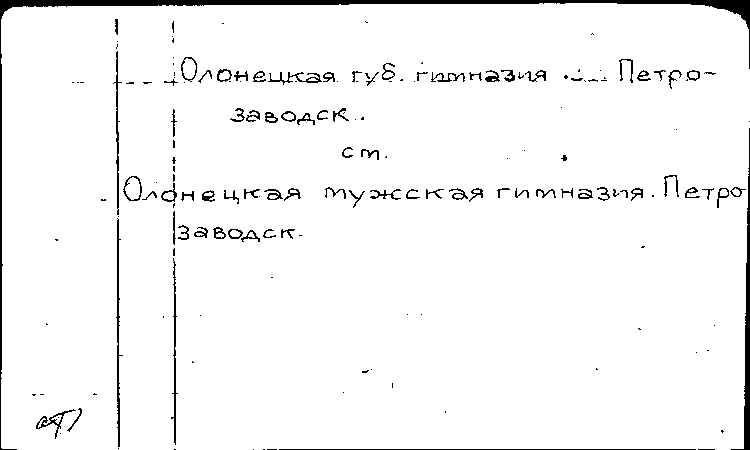 Олонецкая губ. гимназия. Петро-
заводск.
ст.
Олонецкая мужсская гимназия. Петро
заводск.